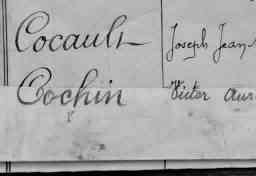 Cocault Joseph Jean
Cochin Victor